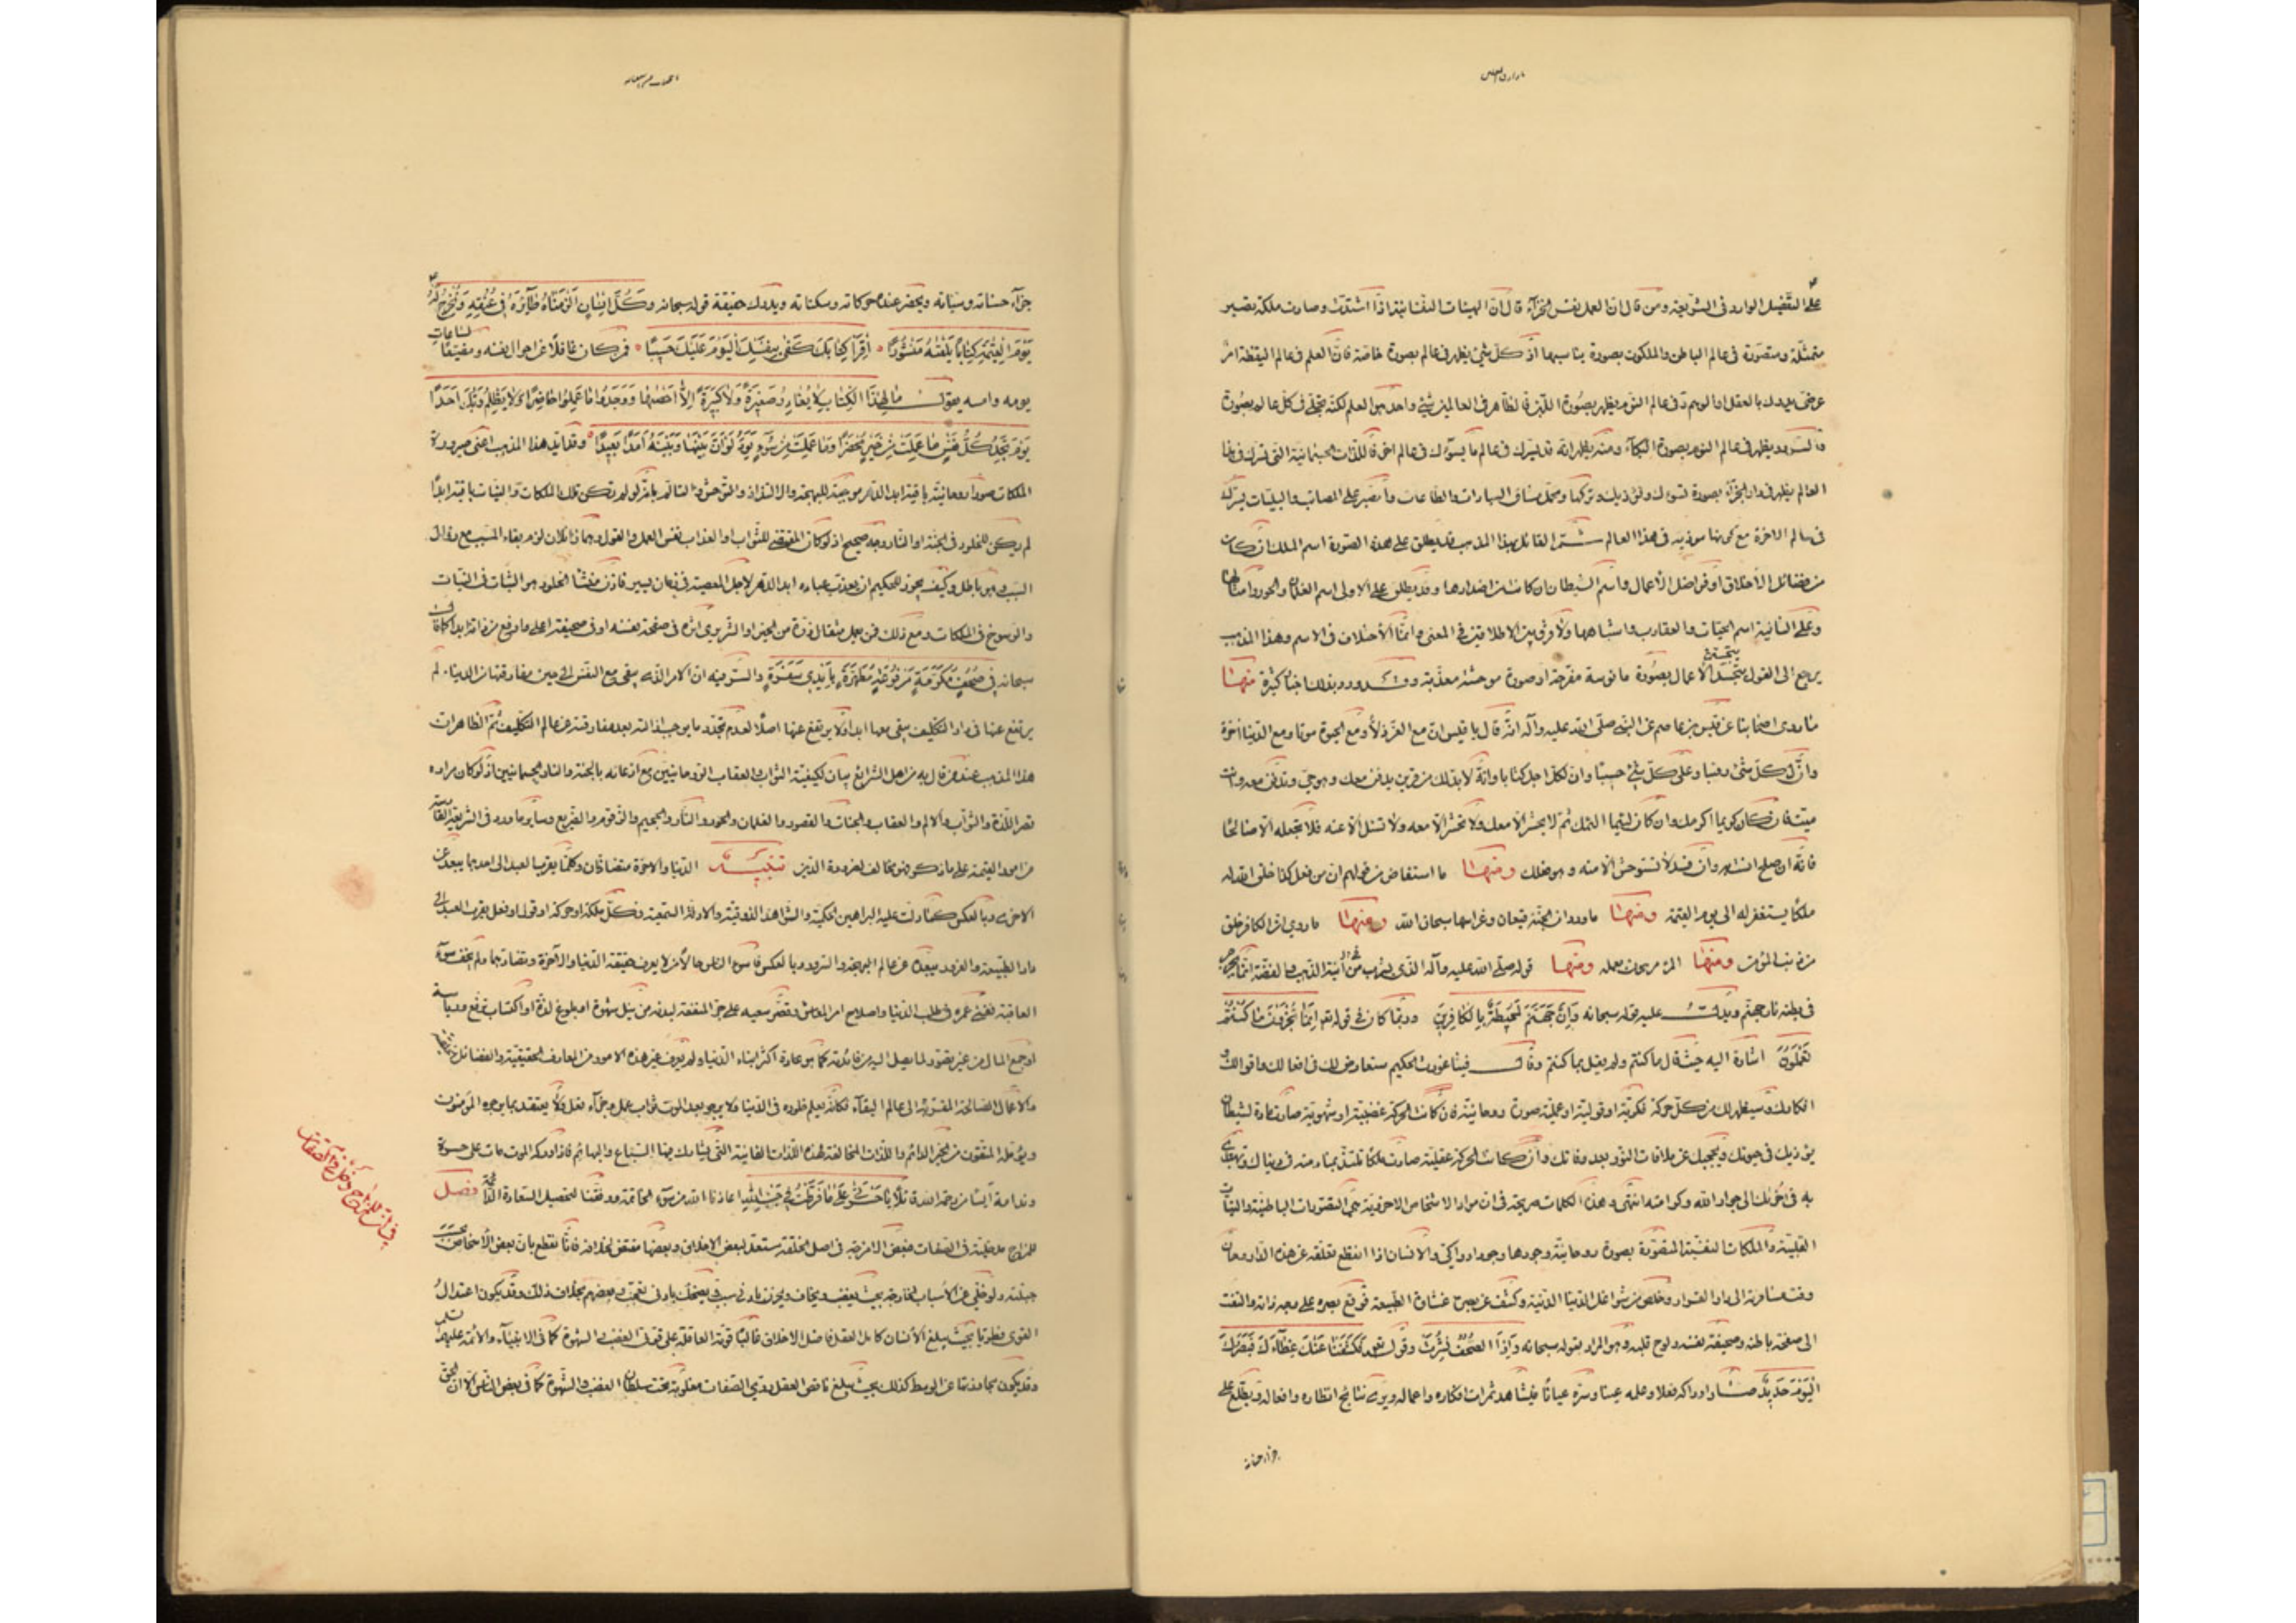 على التفصيل الوارد في الشريعة ومن قال ان العمل نفس الجزآء قال ان الهيئات النفسانية اذا اشتدّت وصارت ملكة تصير
متمثّلة ومتصوّرة في عالم الباطن والملكوت بصورة يناسبها اذ كلّ شيء يظهر في عالم بصورة خاصّة فانّ العلم في عالم اليقظة امر
عرضيّ يدرك بالعقل او الوهم وفي عالم النوم يظهر بصورة اللبن فالظاهر في العالمين شيء واحد هو العلم لكنّه تجلّى في كلّ عالم بصورة
والسرور يظهر في عالم النوم بصورة البكآء ومنه يظهر انّه قد يسرّك في عالم ما يسوؤك في عالم اخر فاللذّات الجسمانية التي تسرّك في هذا
العالم يظهر في دار الجزآء بصورة تسوؤك وتؤذيك وتركها وتحمّل مشاق العبادات والطاعات والصبر على المصائب والبليات يسرّك
في عالم الاخرة مع كونها مؤذية في هذا العالم ثم القائل بهذا المذهب قد يطلق على هذه الصورة اسم الملك ان كان
من فضائل الأخلاق او فواضل الأعمال واسم الشيطان ان كانت من اضدادها وقد يطلق على الاولى اسم الغلمان والحور وامثالهما
وعلى الثانية اسم الحيّات والعقارب واشباهها ولا فرق بين الاطلاقين في المعنى وانّما الأختلاف في الاسم وهذا المذهب
يرجع الى القول بتجسّد الأعمال بصورة مانوسة مفرحة او صورة موحشة معذّبة وقد ورد بذلك اخبار كثيرة منها
ما روى اصحابنا عن قيس بن عاصم عن النبي صلّى الله عليه وآله انّه قال يا قيس ان مع العزّ ذلّا ومع الحيوة موتا ومع الدنيا اخرة
وانّ لكلّ شيء رقيبا وعلى كلّ شيء حسيبا وان لكلّ اجل كتابا وانّه لا بدّ لك من قرين يدفن معك وهو حيّ وتدفن معه وانت
ميّت فان كان كريما اكرمك وان كان لئيما المك ثم لا يحشر الّا معك ولا تحشر الّا معه ولا تسئل الّا عنه فلا تجعله الّا صالحا
فانّه ان صلح انست به وان فسد لا تستوحش الّا منه وهو فعلك ومنها ما استفاض من قولهم ان من فعل كذا خلق الله له
ملكا يستغفر له الى يوم القيمة ومنها ما ورد ان الجنّة قيعان وغراسها سبحان الله ومنها ما روي ان الكافر خلق
من ذنب المؤمن ومنها المرء مرهون بعمله ومنها قوله صلى الله عليه وآله الذي يشرب في آنية الذهب والفضّة انّما يجرجر
في بطنه نار جهنّم ويدلّ عليه قوله سبحانه وَاِنَّ جَهَنَّمَ لَمُحِيطَةٌ بِالكَافِرِينَ وربّما كان في قوله تعم اِنَّمَا تُجْزَوْنَ مَا كُنْتُمْ
تَعْمَلُونَ اشارة اليه حيث قال ما كنتم ولم يقل بما كنتم وقال فيثاغورث الحكيم ستعارض لك في افعالك واقوالك
افكارك وسيظهر لك من كلّ حركة فكريّة او قوليّة او عمليّة صورة روحانيّة فان كانت الحركة غضبيّة او شهوية صارت مادة لشيطان
يؤذيك في حيوتك ويحجبك عن ملاقات النور بعد وفاتك وان كانت الحركة عقليّة صارت ملكا تلتذّ بمنادمته في دنياك وتهتدي
به في اخرتك الى جوار الله وكرامته انتهى وهذه الكلمات صريحة في ان مواد الاشخاص الاخروية هي التصورات الباطنيّة والنيات
القلبيّة والملكات النفسيّة المتصوّرة بصورة روحانيّة وجودها وجود ادراكيّ والانسان اذا انقطع تعلّقه عن هذه الدار وحان
وقت مسافرته الى دار القرار وخلص من شواغل الدنيا الدنيّة وكشف عن بصره غشاوة الطبيعة فوقع بصره على وجه ذاته والتفت
الى صفحة باطنه وصحيفة نفسه ولوح قلبه وهو المراد بقوله سبحانه وَاِذَا الصُّحُفُ نُشِرَتْ وقوله تعم فَكَشَفْنَا عَنْكَ غِطَآءَكَ فَبَصَرُكَ
الْيَوْمَ حَدِيدٌ صار ادراكه فعلا وعلمه عينا وسرّه عيانا فيشاهد ثمرات افكاره واعماله ويرى نتائج انظاره وافعاله ويطّلع على
جزآء حسناته
جزآء حسناته وسيّاته ويحضر عنده حركاته وسكناته ويدرك حقيقة قوله سبحانه وَكُلَّ اِنْسَانٍ اَلْزَمْنَاهُ طَآئِرَهُ فِي عُنُقِهِ وَنُخْرِجُ لَهُ
يَوْمَ الْقِيمَةِ كِتَابًا يَلْقيٰهُ مَنْشُورًا اِقْرَأْ كِتَابَكَ كَفَىٰ بِنَفْسِكَ الْيَوْمَ عَلَيْكَ حَسِيبًا فمن كان غافلا عن احوال نفسه ومضيّعا لساعات
يومه وامسه يقول مَا لِهٰذَا الْكِتَابِ لَا يُغَادِرُ صَغِيرَةً وَلَا كَبِيرَةً اِلَّا اَحْصٰهَا وَوَجَدُوا مَا عَمِلُوا حَاضِرًا وَلَا يَظْلِمُ رَبُّكَ اَحَدًا
يَوْمَ تَجِدُ كُلُّ نَفْسٍ مَا عَمِلَتْ مِنْ خَيْرٍ مُحْضَرًا وَمَا عَمِلَتْ مِنْ سُوءٍ تَوَدُّ لَوْ اَنَّ بَيْنَهَا وَبَيْنَهُ اَمَدًا بَعِيدًا وقد ايّد هذا المذهب اعني صيرورة
الملكات صورا روحانيّة باقية ابد الدهر موجبة للبهجة والالتذاذ والتوحش والتألم بانّه لو لم تكن تلك الملكات والنيات باقية ابدا
لم يكن للخلود في الجنّة او النار وجه صحيح اذ لو كان المقتضي للثواب او العذاب نفس العمل والقول وهما زائلان لزم بقاء المسبب مع زوال
السبب وهو باطل وكيف يجوز للحكيم ان يعذب عباده ابد الدهر لاجل المعصية في زمان يسير فاذن منشأ الخلود هو الثبات في النيّات
والرسوخ في الملكات ومع ذلك فمن يعمل مثقال ذرّة من الخير او الشر يرى اثره في صفحة نفسه او في صحيفة اعلى وارفع من ذاته ابدا كما قال
سبحانه فِي صُحُفٍ مُكَرَّمَةٍ مَرْفُوعَةٍ مُطَهَّرَةٍ بِاَيْدِي سَفَرَةٍ والسّر فيه ان الامر الذي يبقى مع النفس الى حين مفارقتها من الدنيا لم
يرتفع عنها في دار التكليف يبقى معها ابدا ولا يرتفع عنها اصلا لعدم تجدّد ما يوجب ازالته بعد مفارقته عن عالم التكليف ثم الظاهر ان
هذا المذهب عند من قال به من اهل الشرائع بيان لكيفيّة الثواب والعقاب الروحانيين مع اذعانه بالجنة والنار الجسمانيين اذ لو كان مراده
قصر اللذة والثواب والالم والعقاب والجنات والقصور والغلمان والحور والنار والجحيم والزقوم والضريع وسائر ما ورد في الشريعة القادسة
من امور القيمة على ما ذكر فهو مخالف لضرورة الدين تنبيه الدنيا والاخرة متضادّتان وكلّما يقرب العبد الى احديهما يبعد عن
الاخرى وبالعكس كما دلّت عليه البراهين الحكميّة والشواهد الذوقيّة والادلّة السّمعيّة فكلّ ملكة او حركة او قول او فعل يقرب العبد الى
دار الطبيعة والغرور يبعده عن عالم البهجة والسرور وبالعكس فاسوء الناس حالا من لا يعرف حقيقة الدنيا والآخرة وتضادّهما ولم يخف سوء
العاقبة فيفني عمره في طلب الدنيا واصلاح امر المعاش ويقصر سعيه على جرّ المنفعة لبدنه من نيل شهوة او بلوغ لذّة او اكتساب ترفع ورياسة
او جمع المال من غير تصوّر لما يصل اليه من فائدته كما هو عادة اكثر ابناء الدنيا ولم يعرف غير هذه الامور من المعارف الحقيقيّة والفضائل الخلقيّة
والأعمال الصالحة المقرّبة الى عالم البقآء فكانّه يعلم خلوده في الدنيا ولا يرجو بعد الموت ثواب عمل وجزآء فعل ولا يعتقد بما يرجوه المؤمنون
ويؤمّله المتقون من الخير الدائم واللذّات المخالفة لهذه اللذّات الفانية التي يشارك فيها السباع والبهائم فاذا ادركه الموت مات على حسرة
وندامة آيسا من رحمة الله قائلا يَا حَسْرَتٰي عَلٰى مَا فَرَّطْتُ فِي جَنْبِ اللهِ اعاذنا الله من سوء الخاتمة ووفّقنا لتحصيل السعادة الدائمة فصل
للمزاج مدخليّة في الصفات فبعض الامزجة في اصل الخلقة مستعدّ لبعض الاخلاق وبعضها مقتض لخلافه فانّا نقطع بان بعض الأشخاص بحسب
جبلّته ولو خلّي عن الأسباب الخارجة بحيث يغضب ويخاف ويحزن بادنى سبب ويضحك بادنى تعجّب وبعضهم بخلاف ذلك وقد يكون اعتدال
القوى فطريّا بحيث يبلغ الأنسان كامل العقل فاضل الاخلاق غالبا قوّته العاقلة على قوّتي الغضب والشهوة كما في الانبيآء والائمة عليهم
وقد يكون مجاوزتها عن الوسط كذلك بحيث يبلغ ناقص العقل رديّ الصفات مغلوبة تحت سلطان الغضب والشهوة كما في بعض الناس الّا ان الحقّ
في ان للمزاج دخل في الصفات